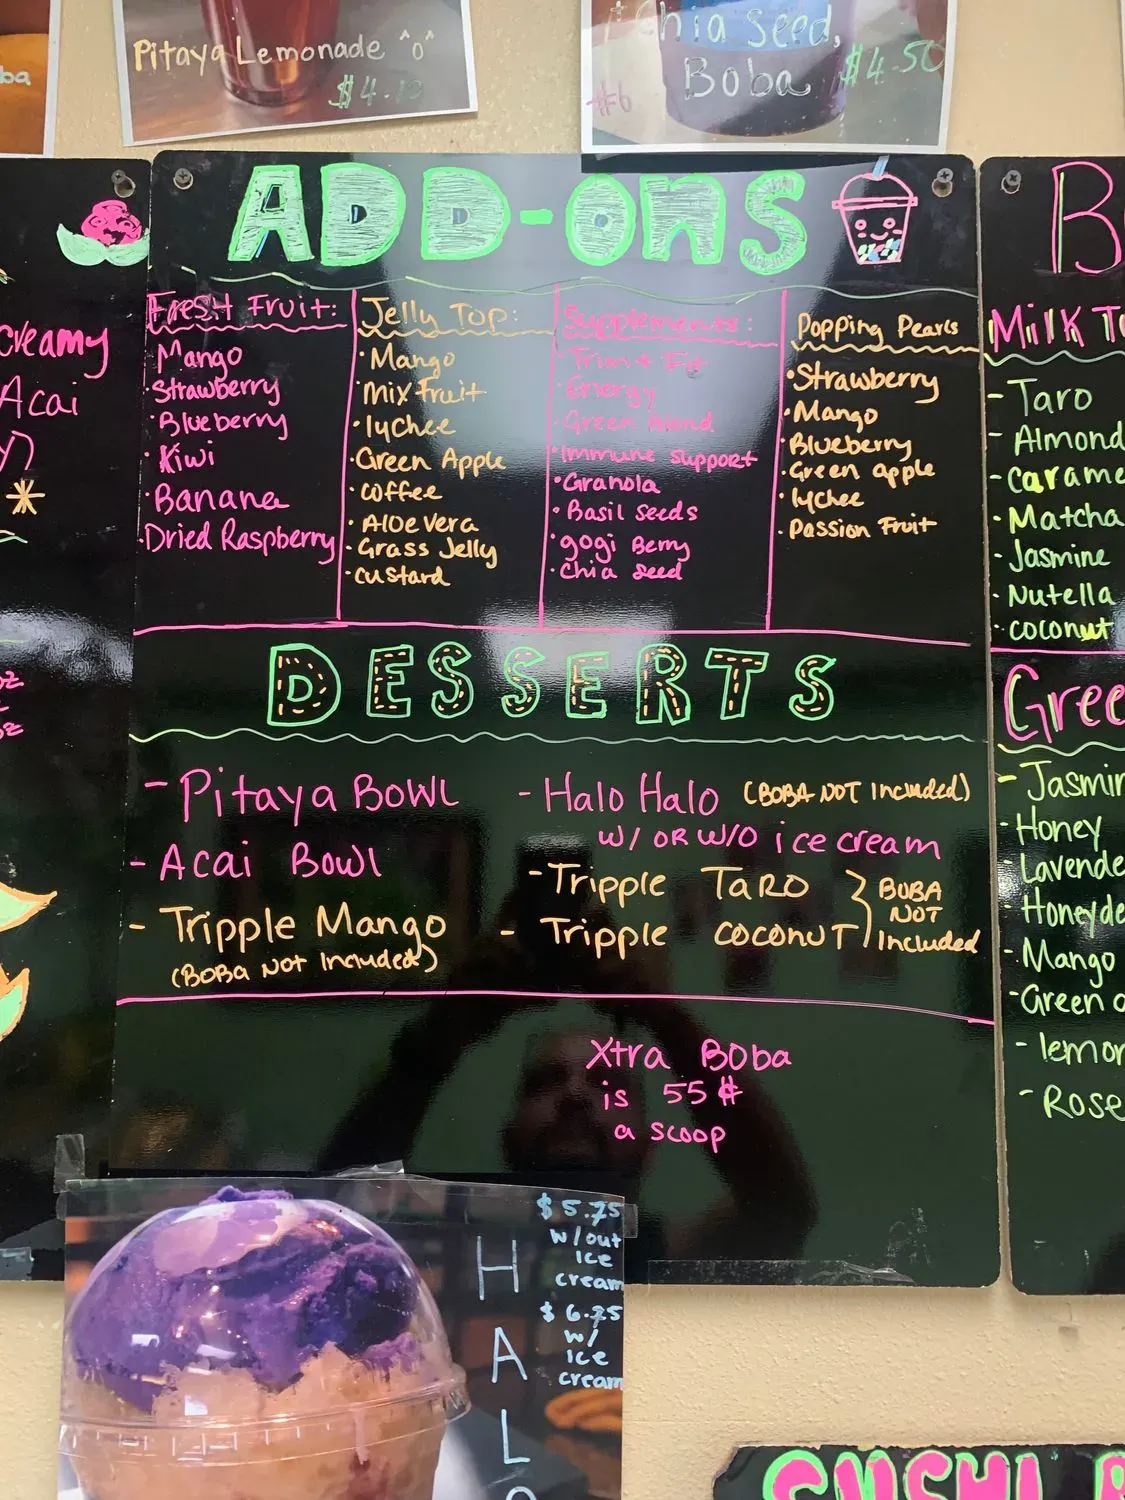 ba
Pitaya Lemonade ^o^
Chia Seed,
Boba
$4.50
#6
ADD-ONS
Fresh Fruit:
Mango
· Strawberry
· Blueberry
· Kiwi
· Banana
· Dried Raspberry
Jelly Top:
· Mango
· Mix fruit
· lychee
· Green Apple
· coffee
· Aloe vera
· Grass Jelly
· custard
Supplements:
· Trim & Fit
· Energy
· Green Blend
· Immune support
· Granola
· Basil seeds
· gogi Berry
· Chia seed
Popping Pearls
· Strawberry
· Mango
· Blueberry
· Green apple
· lychee
· Passion Fruit
DESSERTS
- Pitaya Bowl
- Acai Bowl
- Tripple Mango
(BOBA Not Included)
- Halo Halo (BOBA NOT Included)
w/ OR w/o ice cream
- Tripple TARO
- Tripple COCONUT
BOBA
NOT
Included
Xtra BOBA
is 55¢
a scoop
creamy
Acai
oz
oz
Milk T
- Taro
- Almond
- Carame
- Matcha
- Jasmine
- Nutella
- coconut
Gree
- Jasmin
- Honey
- Lavende
- Honeyde
- Mango
- Green
- lemon
- Rose
$5.75
w/out
ice
cream
$6.75
w/
ice
cream
H
A
L
O
SUSHI